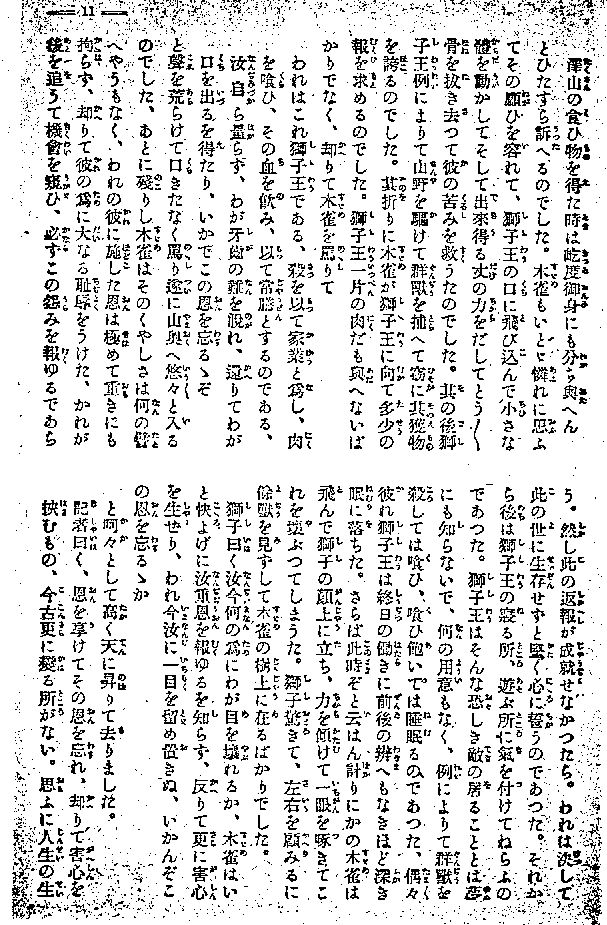 11
深山の食ひ物を得た時は屹度御身にも分ち與へん
とひたすら訴へるのでした。木雀もいとゞ憐れに思ふ
てその願ひを容れて、獅子王の口に飛び込んで小さな
體を動かしてそして出來得る丈の力をだしてとう〱
骨を抜き去つて彼の苦みを救うたのでした。其の後獅
子王例によりて山野を驅けて群獸を捕へて窃に其獲物
を誇るのでした。其折りに木雀が獅子王に向て多少の
報を求めるのでした。獅子王一片の肉だも與へないば
かりでなく、却りて木雀を罵りて
われはこれ獅子王である、殺を以て家業と爲し、肉
を喰ひ、その血を飮み、以て常膳とするのである、
汝自ら量らず、わが牙齒の難を脱れ、還りてわが
口を出るを得たり、いかでこの恩を忘るゝぞ
と聲を荒らけて口きたなく罵り遂に山奥へ悠々と入る
のでした、あとに殘りし木雀はそのくやしさは何の譬
へやうもなく、われの彼に施した恩は極めて重きにも
拘らず、却りて彼の爲に大なる恥辱をうけた、かれが
後を追うて機會を窺ひ、必ずこの怨みを報ゆるであら
う。然し此の返報が成就せなかつたら。われは決して
此の世に生存せずと堅く心に誓うのであつた。それか
ら後は獅子王の寢る所、遊ぶ所に氣を付けてねらふの
であつた。獅子王はそんな恐しき敵の居ることとは夢
にも知らないで、何の用意もなく、例によりて群獸を
殺しては喰ひ、喰ひ飽いては睡眠るのであつた、偶々
彼れ獅子王は終日の働きに前後の辨へもなきほど深き
眠に落ちた。さらば此時ぞと云はん計りにかの木雀は
飛んで獅子の額上に立ち、力を傾けて一眼を啄きてこ
れを壞ぶつてしまうた。獅子驚きて、左右を顧みるに
餘獸を見ずして木雀の樹上に在るばかりでした。
獅子曰く汝今何の爲にわが目を壞れるか、木雀はい
と快よげに汝重恩を報ゆるを知らず、反りて更に害心
を生せり、われ今汝に一目を留め置きぬ、いかんぞこ
の恩を忘るゝか
と呵々として高く天に昇りて去りました。
記者曰く、恩を享けてその恩を忘れ、却りて害心を
挾むもの、今古更に變る所がない。思ふに人生の生